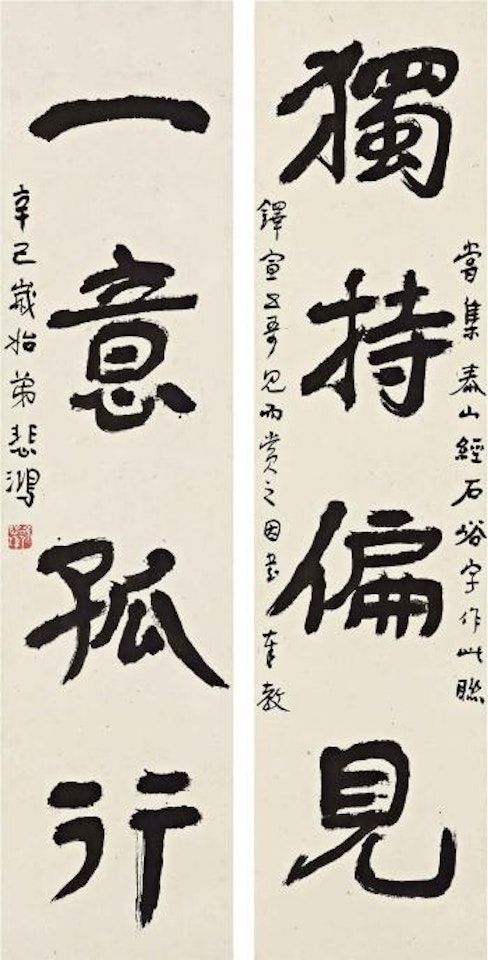 嘗集泰山經石峪字作此聯
獨持偏見
鐸宣五哥見而賞之因書奉教
一意孤行
辛巳歲始弟悲鴻